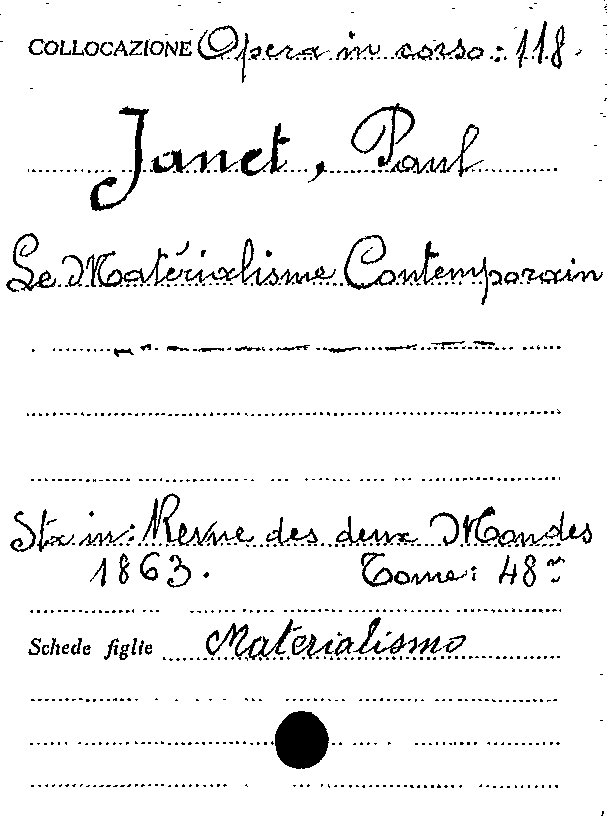 COLLOCAZIONE Opera in corso: 118.
Janet, Paul
Le Matérialisme Contemporain
Sta in: Revue des deux Mondes
1863. Tome: 48me
Schede figlie Materialismo